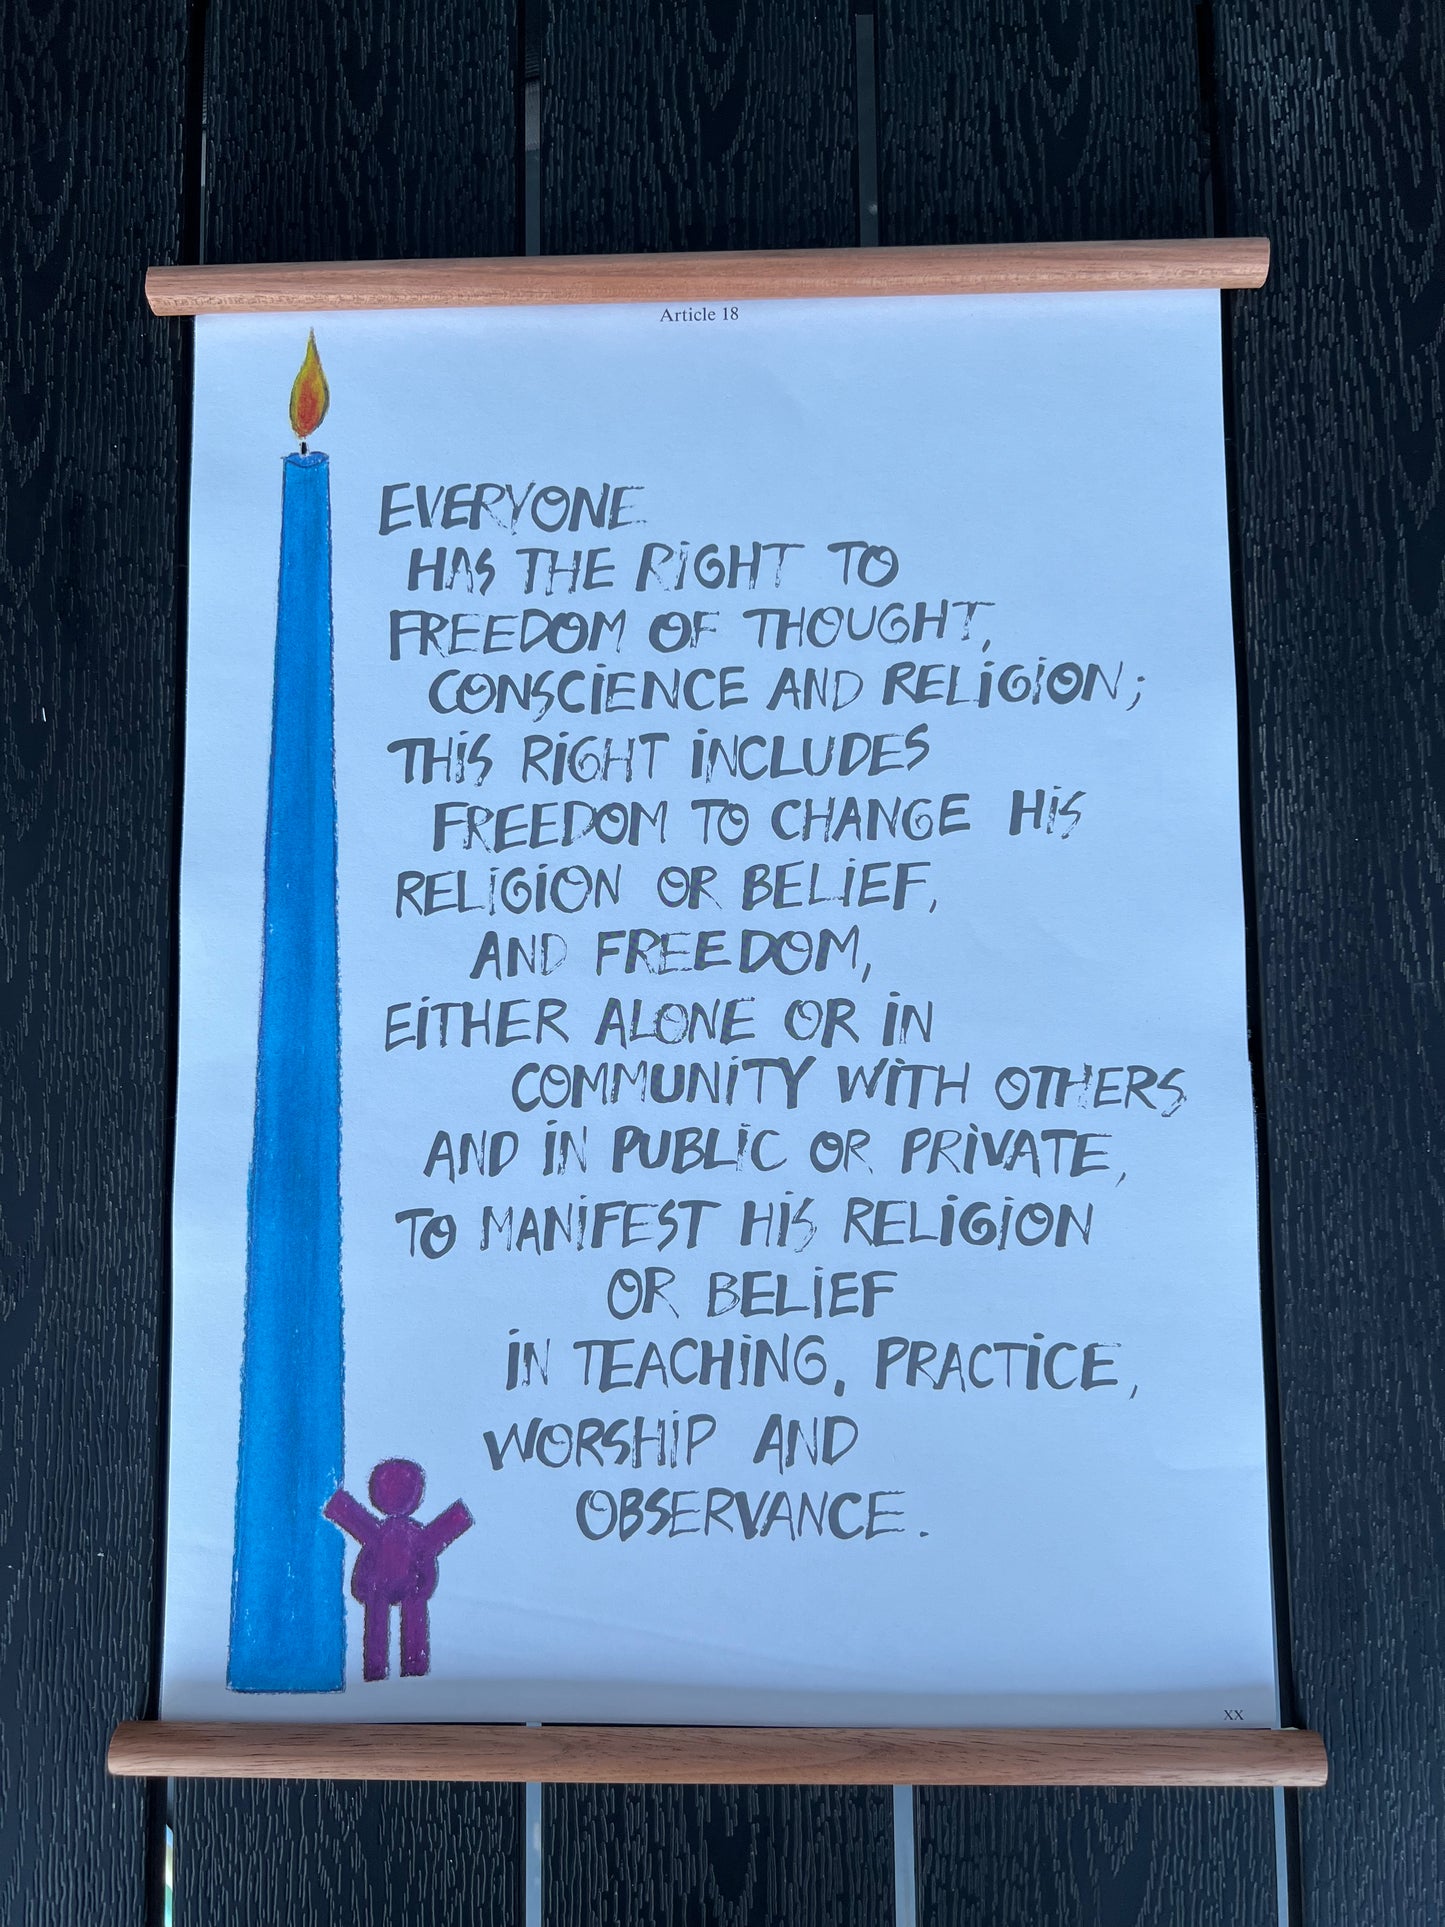 Article 18
EVERYONE
HAS THE RIGHT TO
FREEDOM OF THOUGHT,
CONSCIENCE AND RELIGION;
THIS RIGHT INCLUDES
FREEDOM TO CHANGE HIS
RELIGION OR BELIEF,
AND FREEDOM,
EITHER ALONE OR IN
COMMUNITY WITH OTHERS
AND IN PUBLIC OR PRIVATE,
TO MANIFEST HIS RELIGION
OR BELIEF
IN TEACHING, PRACTICE,
WORSHIP AND
OBSERVANCE.
XX